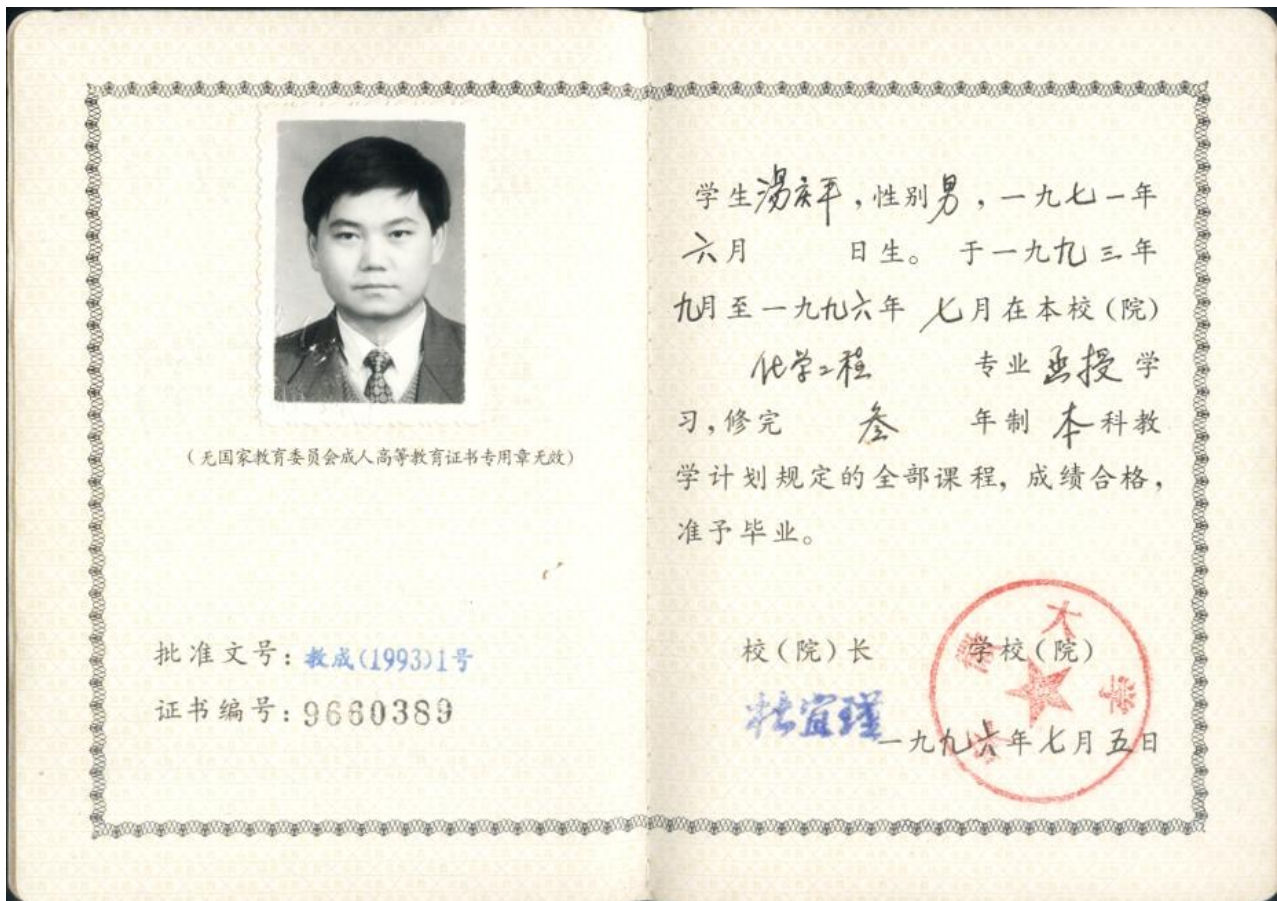 (无国家教育委员会成人高等教育证书专用章无效)
批准文号：教成(1993)1号
证书编号：9660389
学生汤庆平，性别男，一九七一年
六月 日生。于一九九三年
九月至一九九六年 七月在本校(院)
化学工程 专业函授学
习，修完 叁 年制 本科教
学计划规定的全部课程，成绩合格，
准予毕业。
校(院)长 学校(院)
安徽大学
一九九六年七月五日